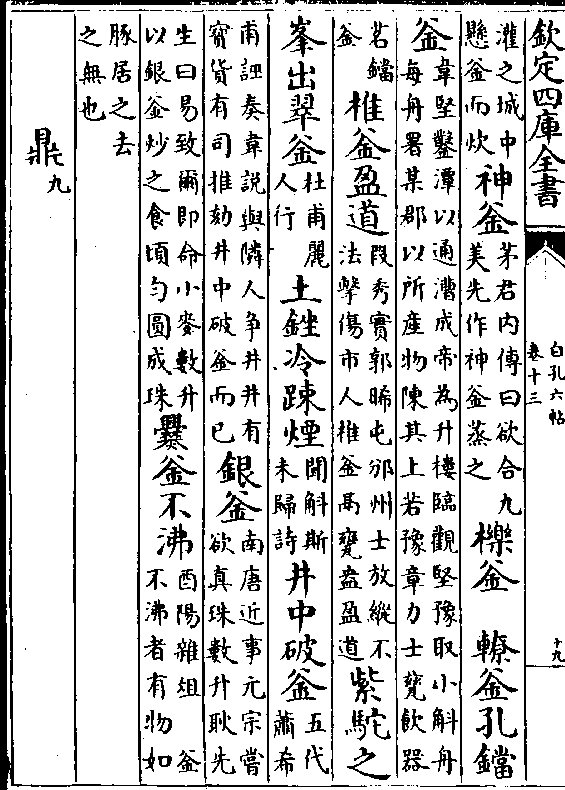 欽定四庫全書
白孔六帖
卷十三
十九
灌之城中懸釜而炊神釜茅君内傳曰欲合九美先作神釜蒸之櫟釜 轑釜孔鐺
釜韋堅鑿潭以通漕成帝為升樓臨觀堅豫取小斛舟每舟署某郡以所産物陳其上若豫章力士甆飲器
茗鐺釜椎釜盈道段秀實郭晞屯邠州士放縱不法擊傷市人椎釜鬲甕盎盈道紫駝之
峯出翠釜杜甫麗人行土銼冷踈煙聞斛斯未歸詩井中破釜五代蕭希
甫誣奏韋説與隣人争井井有寳貨有司推劾井中破釜而已銀釜南唐近事元宗嘗欲真珠數升耿先
生曰易致爾即命小麥數升以銀釜炒之食頃勻圓成珠爨釜不沸酉陽雜俎 釜不沸者有物如
豚居之去之無也
鼎九